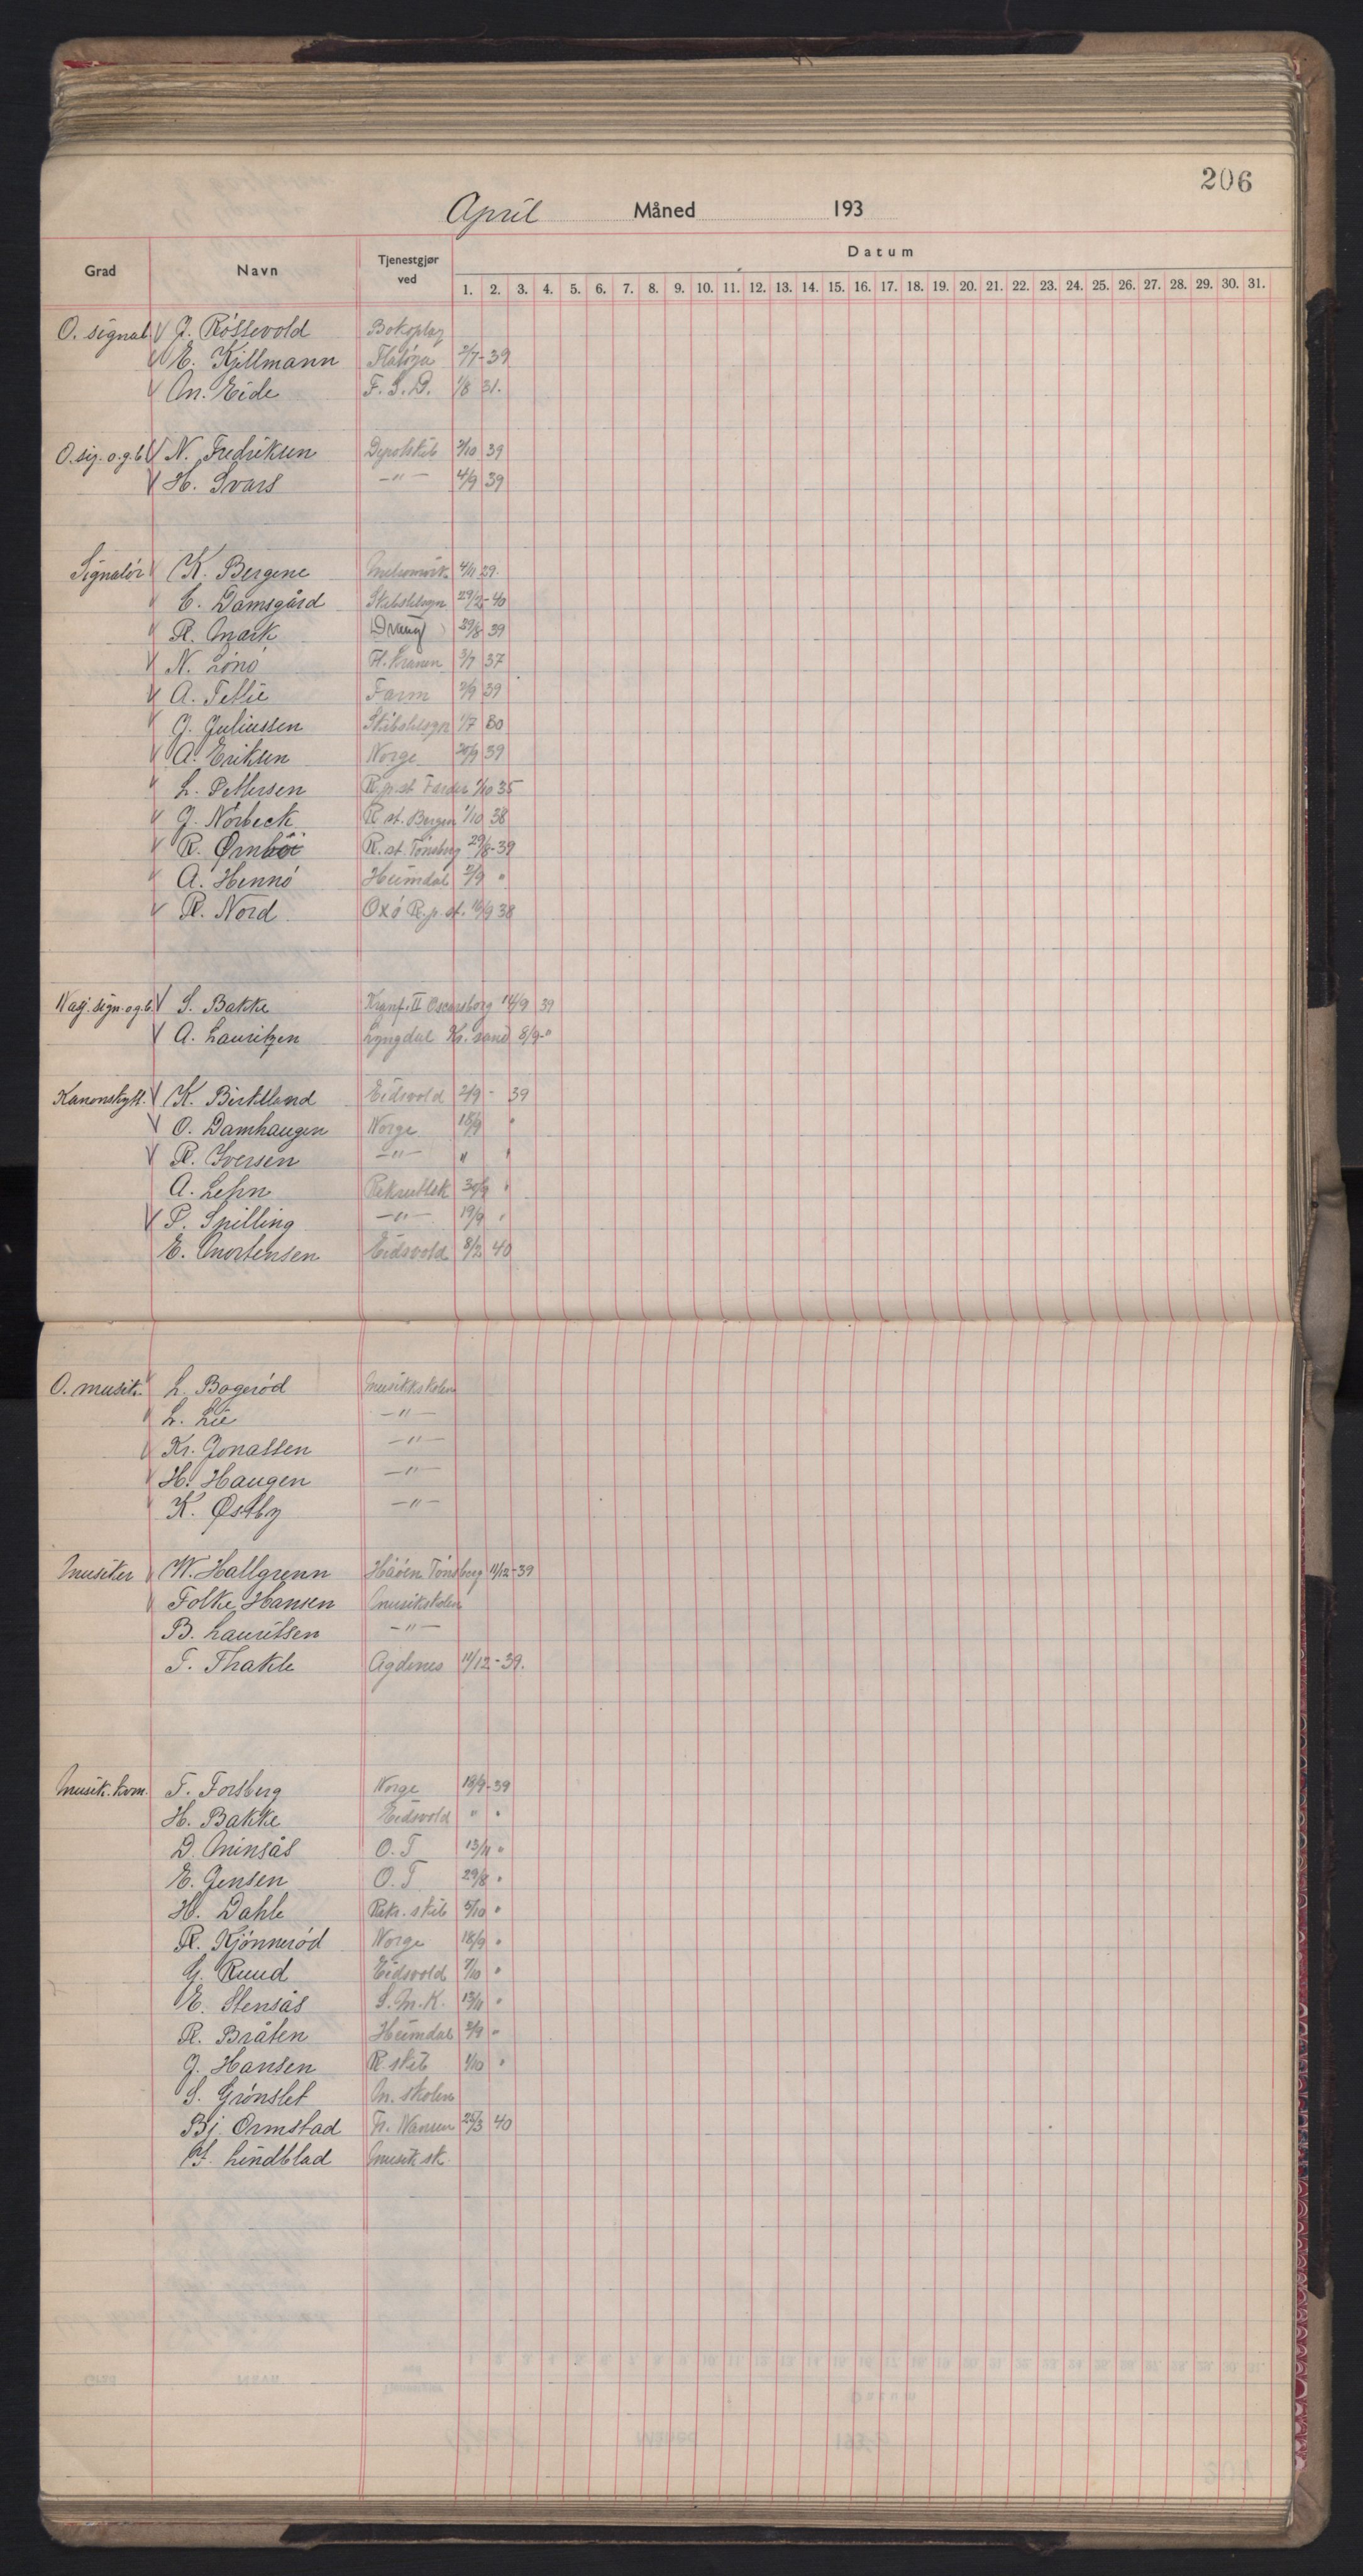 206
April Måned 193
Grad Navn Tjenestgjør ved Datum
1. 2. 3. 4. 5. 6. 7. 8. 9. 10. 11. 12. 13. 14. 15. 16. 17. 18. 19. 20. 21. 22. 23. 24. 25. 26. 27. 28. 29. 30. 31.
O. signal. J. Røssevold Bokoplag
E. Kjellmann Flatøya 3/7-39
M. Eide F.S.D. 1/8 31.
O. sig. o.g.b. N. Fredriksen Depotskib 2/10 39
H. Svars -"- 4/9 39
Signalør K. Bergene 4/11 29.
C. Damsgård 29/2-40
R. Mark Draug 29/8 39
N. Lønø Fl. kranen 3/7 37
A. Tellie Farm 2/9 39
J. Juliussen 1/7 30
A. Eriksen Norge 39
L. Pettersen R.p.st Færder 1/10 35
J. Nörbeck R st. Bergen 1/10 38
R. R. st. Tønsberg 29/8-39
A. Hennø Heimdal 2/9 "
R. Nord Oxø R.p.st. 38
sign. o.g.b. S. Bakke II Oscarsborg 14/9 39
A. Lauritzen Lyngdal Kr. sand 8/9-"
Kanonskytt. K. Birkeland Eidsvold 2/9 - 39
O. Damhaugen Norge 18/9 "
R. Iversen -"- " "
A. Lehn Rekruttsk "
P. Spilling -"- 19/9 "
E. Mortensen Eidsvold 8/2 40
O. musik. L. Bogerød Musikkskolen
L. Lie -"-
Kr. Jonassen -"-
H. Haugen -"-
K. Østby -"-
Musiker W. Hallgrenn Håöen Tönsberg 11/12-39
Folke Hansen Musikskolen
B. Lauritsen -"-
T. Thakle Agdenes 11/12-39.
Musik. kom. T. Forsberg Norge 18/9-39
H. Bakke Eidsvold " "
D. Minsås O.T 13/11 "
E. Jensen O.T 29/8 "
H. Dahle Rekr. skib 5/10 "
R. Kjönnerød Norge 18/9 "
G. Ruud Eidsvold 7/10 "
E. Stensås S.M.K. 13/11 "
R. Bråten Heimdal 2/9 "
J. Hansen R. skib 1/10 "
S. Grønslet M. skolen
Bj. Ormstad Fr. Nansen 25/3 40
Lindblad Musik sk.